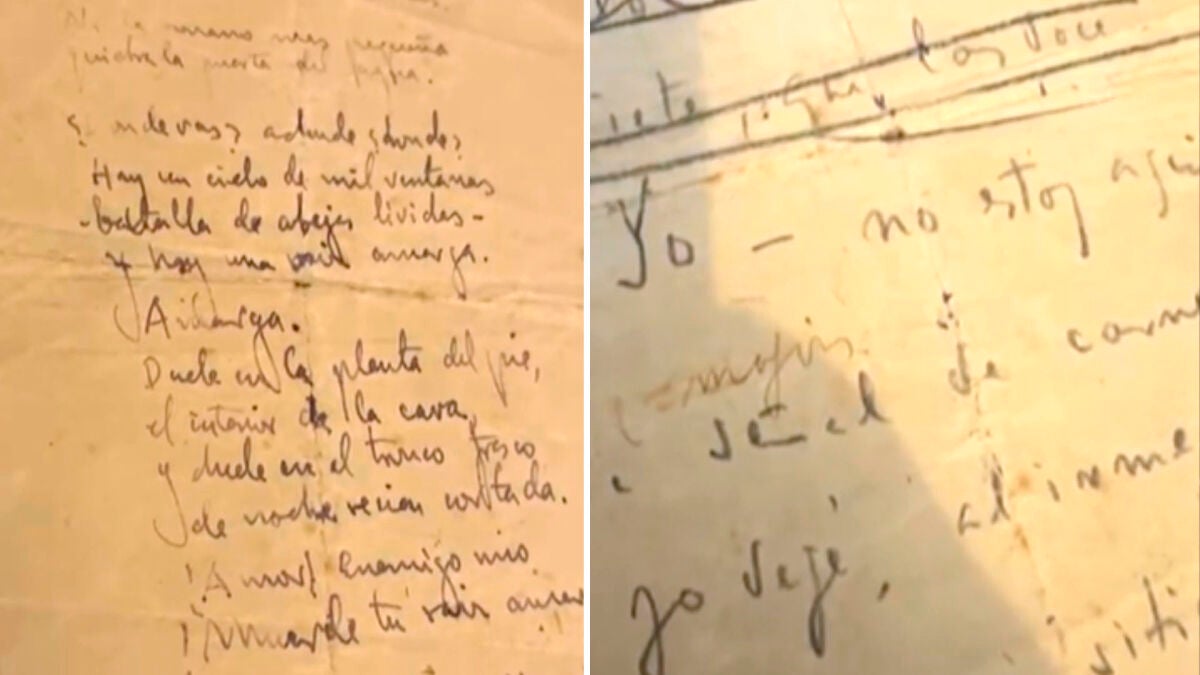 Ni la mano mas pequeña
quiebra la puerta del agua.
adonde ¿donde?
Hay un cielo de mil ventanas
-batalla de abejas lividas-
y hay una raiz amarga.
Amarga.
Duele en la planta del pie,
el interior de la cara,
y duele en el tronco fresco
de noche recien cortada.
¡Amor! Enemigo mio
¡Muerde tu raiz amar
iete los doce
Yo - no estoy aqui
señal de carn
yo dejé, al irme
siti